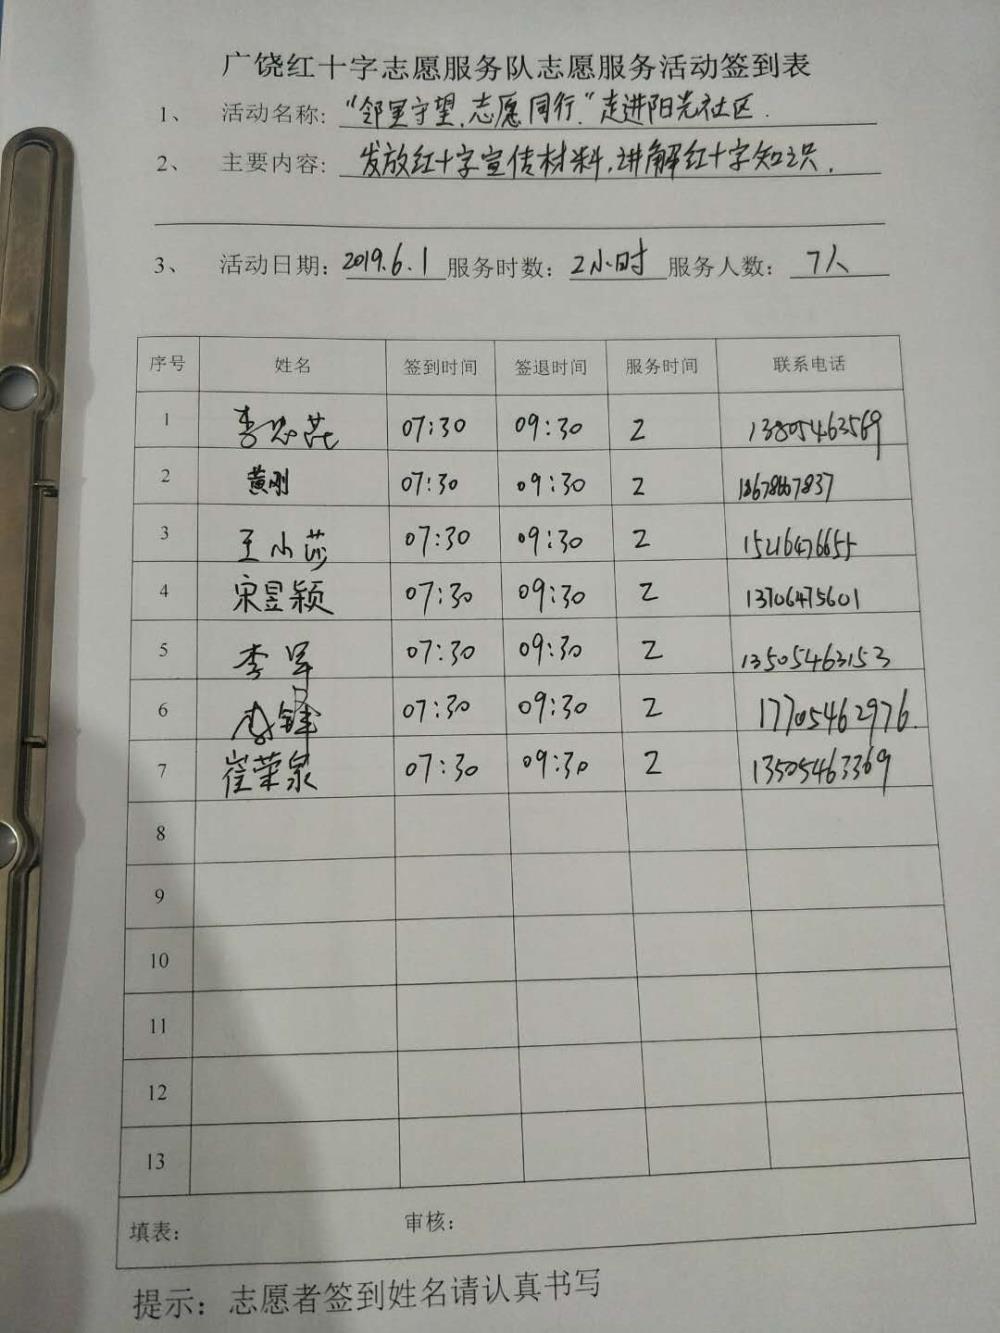 广饶红十字志愿服务队志愿服务活动签到表
1、 活动名称: "邻里守望、志愿同行"走进阳光社区.
2、 主要内容: 发放红十字宣传材料,讲解红十字知识.
3、 活动日期: 2019.6.1 服务时数: 2小时 服务人数: 7人
序号 姓名 签到时间 签退时间 服务时间 联系电话
1 李 07:30 09:30 2 13805463569
2 黄刚 07:30 09:30 2
3 王小莎 07:30 09:30 2 15216476655
4 宋昱颖 07:30 09:30 2 13706475601
5 李军 07:30 09:30 2 13505463153
6 李锋 07:30 09:30 2 17705462976.
7 崔荣泉 07:30 09:30 2 13505463369
8
9
10
11
12
13
填表: 审核:
提示: 志愿者签到姓名请认真书写